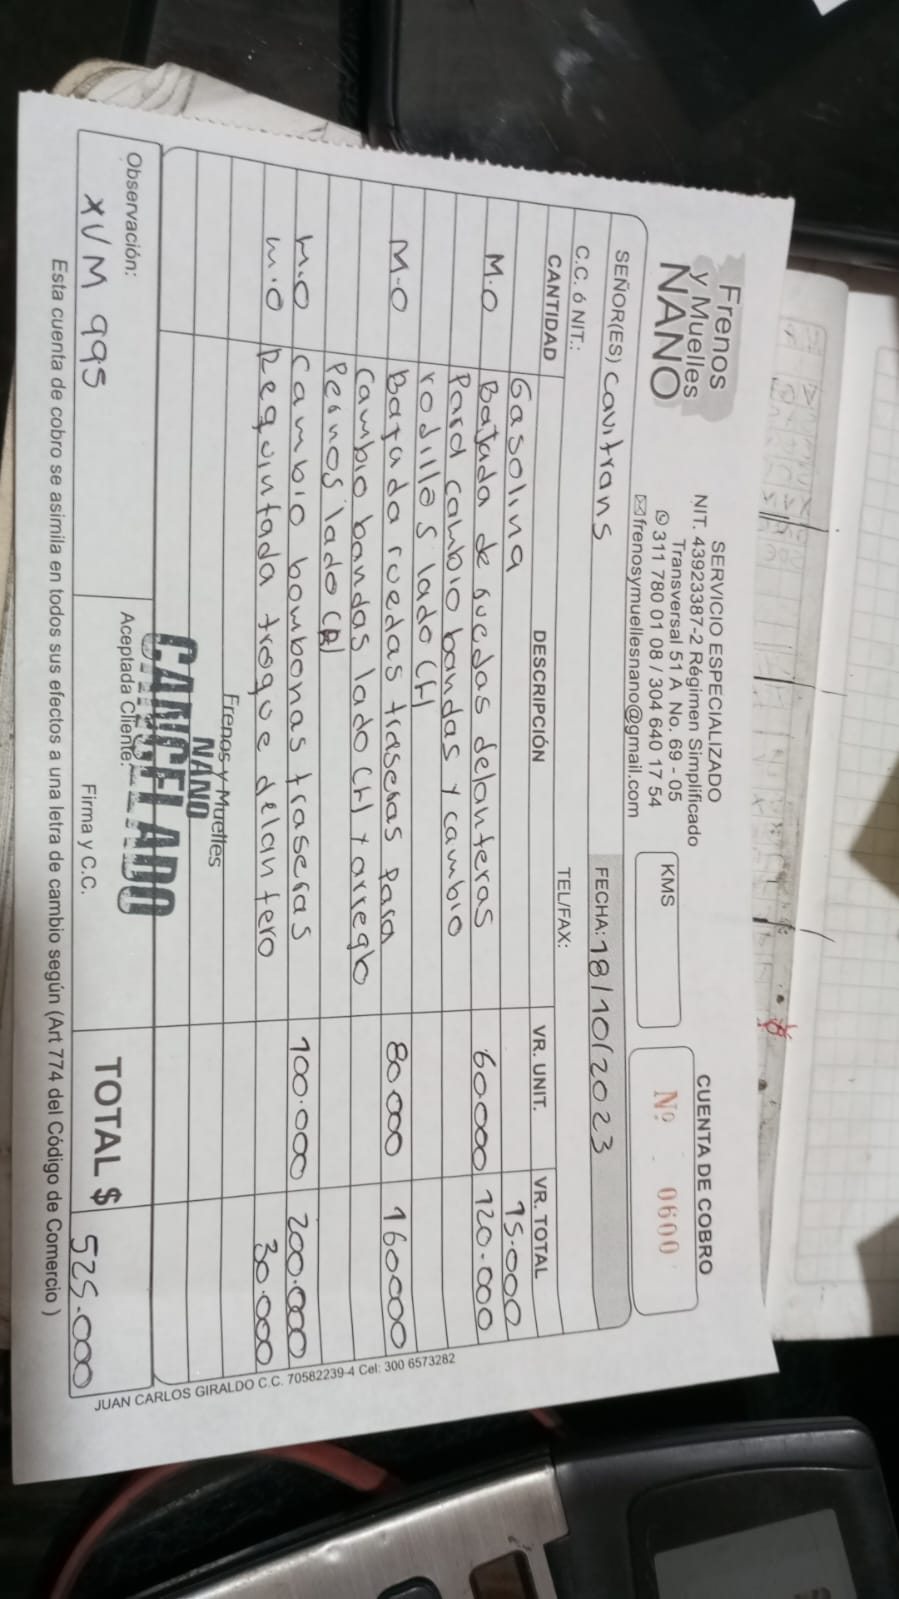 Frenos
y Muelles
NANO
SERVICIO ESPECIALIZADO
NIT. 43923387-2 Régimen Simplificado
Transversal 51 A No. 69 - 05
311 780 01 08 / 304 640 17 54
frenosymuellesnano@gmail.com
KMS
CUENTA DE COBRO
Nº 0600
SEÑOR(ES) Cavitrans
FECHA: 18/10/2023
C.C. ó NIT.:
TEL/FAX:
CANTIDAD DESCRIPCIÓN VR. UNIT. VR. TOTAL
Gasolina 15.000
M.O Bajada de ruedas delanteras 60000 120.000
Para cambio bandas y cambio
rodillos lado CH
M.O Bajada ruedas traseras para 80.000 160000
Cambio bandas lado CH y arreglo
Pernos lado
M.O Cambio bombonas traseras 100.000 200.000
M.O Requintada troque delantero 30.000
Frenos y Muelles
NANO
CANCELADO
Observación:
XVM 995
Aceptada Cliente:
Firma y C.C.
TOTAL $ 525.000
Esta cuenta de cobro se asimila en todos sus efectos a una letra de cambio según (Art 774 del Código de Comercio )
JUAN CARLOS GIRALDO C.C. 70582239-4 Cel: 300 6573282